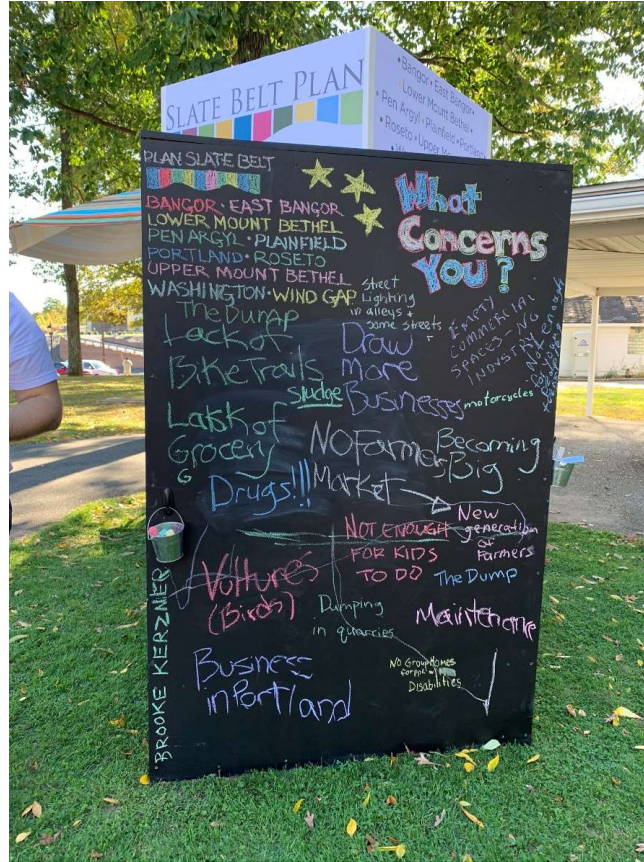 SLATE BELT PLAN
• Bangor • East Bangor •
Lower Mount Bethel •
• Pen Argyl • Plainfield • Portland
• Roseto • Upper
PLAN SLATE BELT
BANGOR • EAST BANGOR
LOWER MOUNT BETHEL
PEN ARGYL • PLAINFIELD
PORTLAND • ROSETO
UPPER MOUNT BETHEL
WASHINGTON • WIND GAP
What
Concerns
You?
Street
Lighting
in alleys +
some streets
EMPTY
COMMERCIAL
SPACES - NO
INDUSTRY
Not enough
The Dump
Lack of
Bike Trails
Sludge
Draw
More
Businesses
motorcycles
Lack of
Grocery
G
Drugs!!!
NO Farmers
Market
Becoming
Big
New
generation
of
Farmers
NOT ENOUGH
FOR KIDS
TO DO
The Dump
Voltures
(Birds)
Dumping
in quarries
Maintenance
Business
in Portland
No Group Homes
for ppl w/
Disabilities
• BROOKE KERZNER